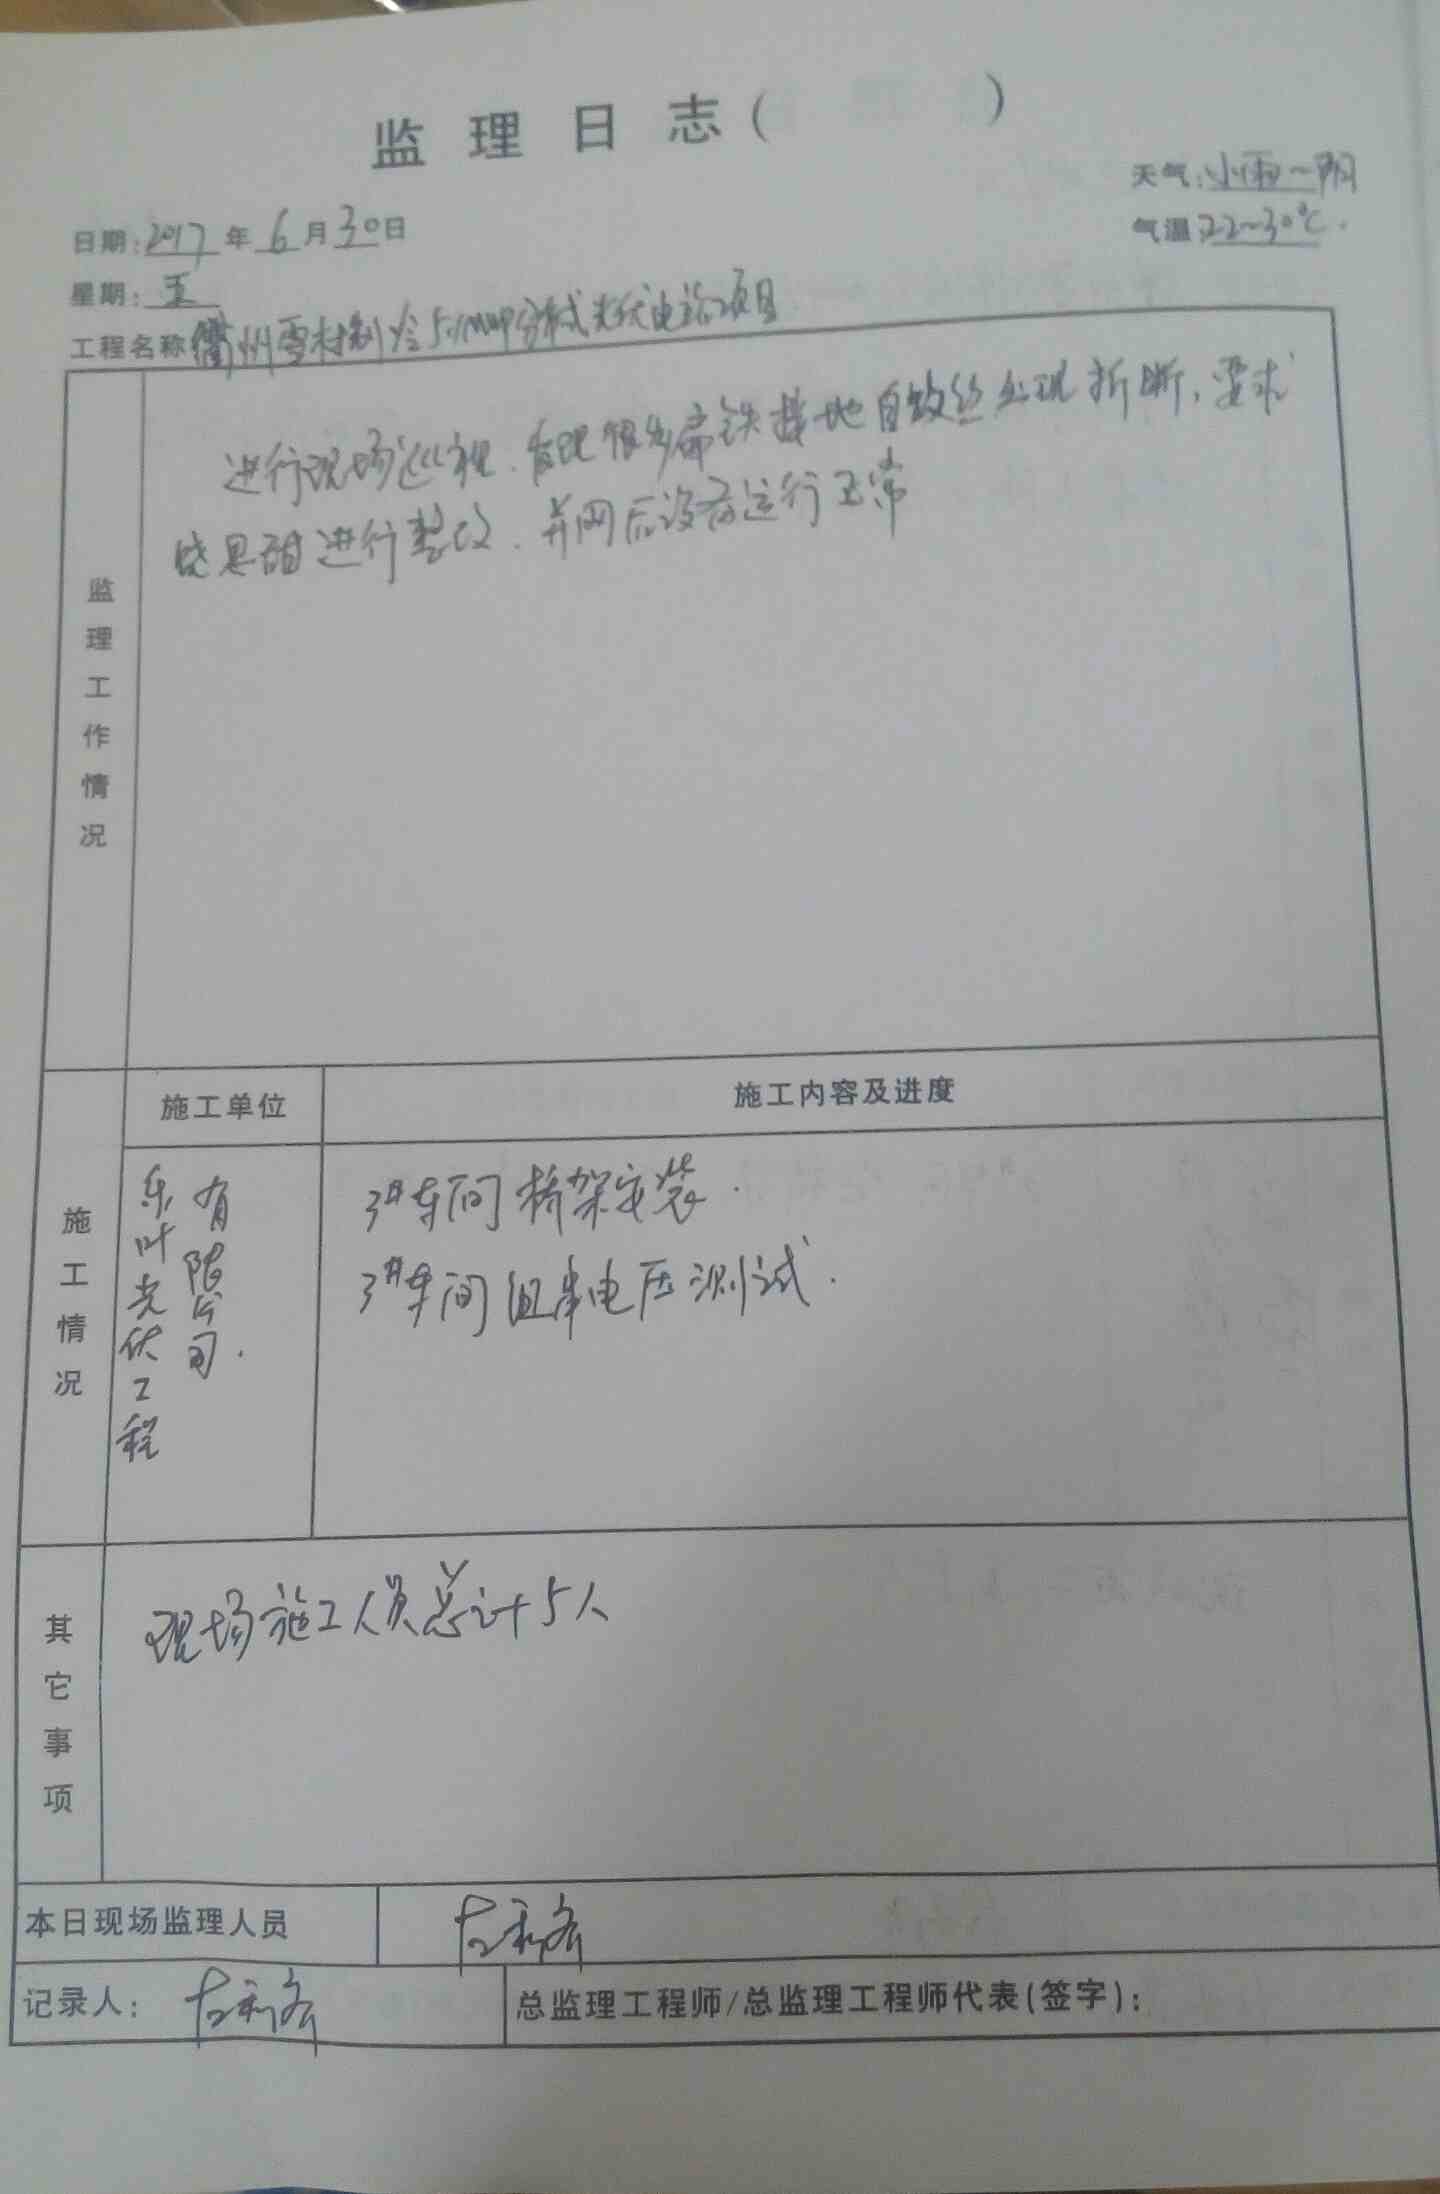 监理日志( )
天气:小雨~阴
日期:2017年6月30日
气温:22~30℃.
星期:五
工程名称 衢州雪村制冷 分布式光伏电站项目
进行现场巡视,发现很多扁铁接地自攻丝出现折断,要求
进行整改,并网后设备运行正常
监理工作情况
施工单位
施工内容及进度
施工情况
乐叶光伏工程
有限公司.
3#车间桥架安装.
3#车间组串电压测试.
其它事项
现场施工人员总计5人
本日现场监理人员
记录人:
总监理工程师/总监理工程师代表(签字):